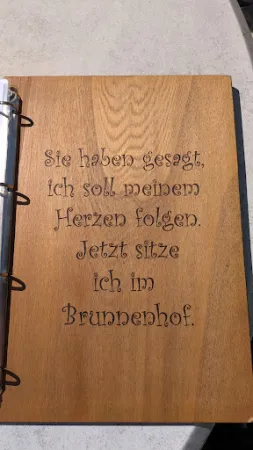 Sie haben gesagt,
ich soll meinem
Herzen folgen.
Jetzt sitze
ich im
Brunnenhof.